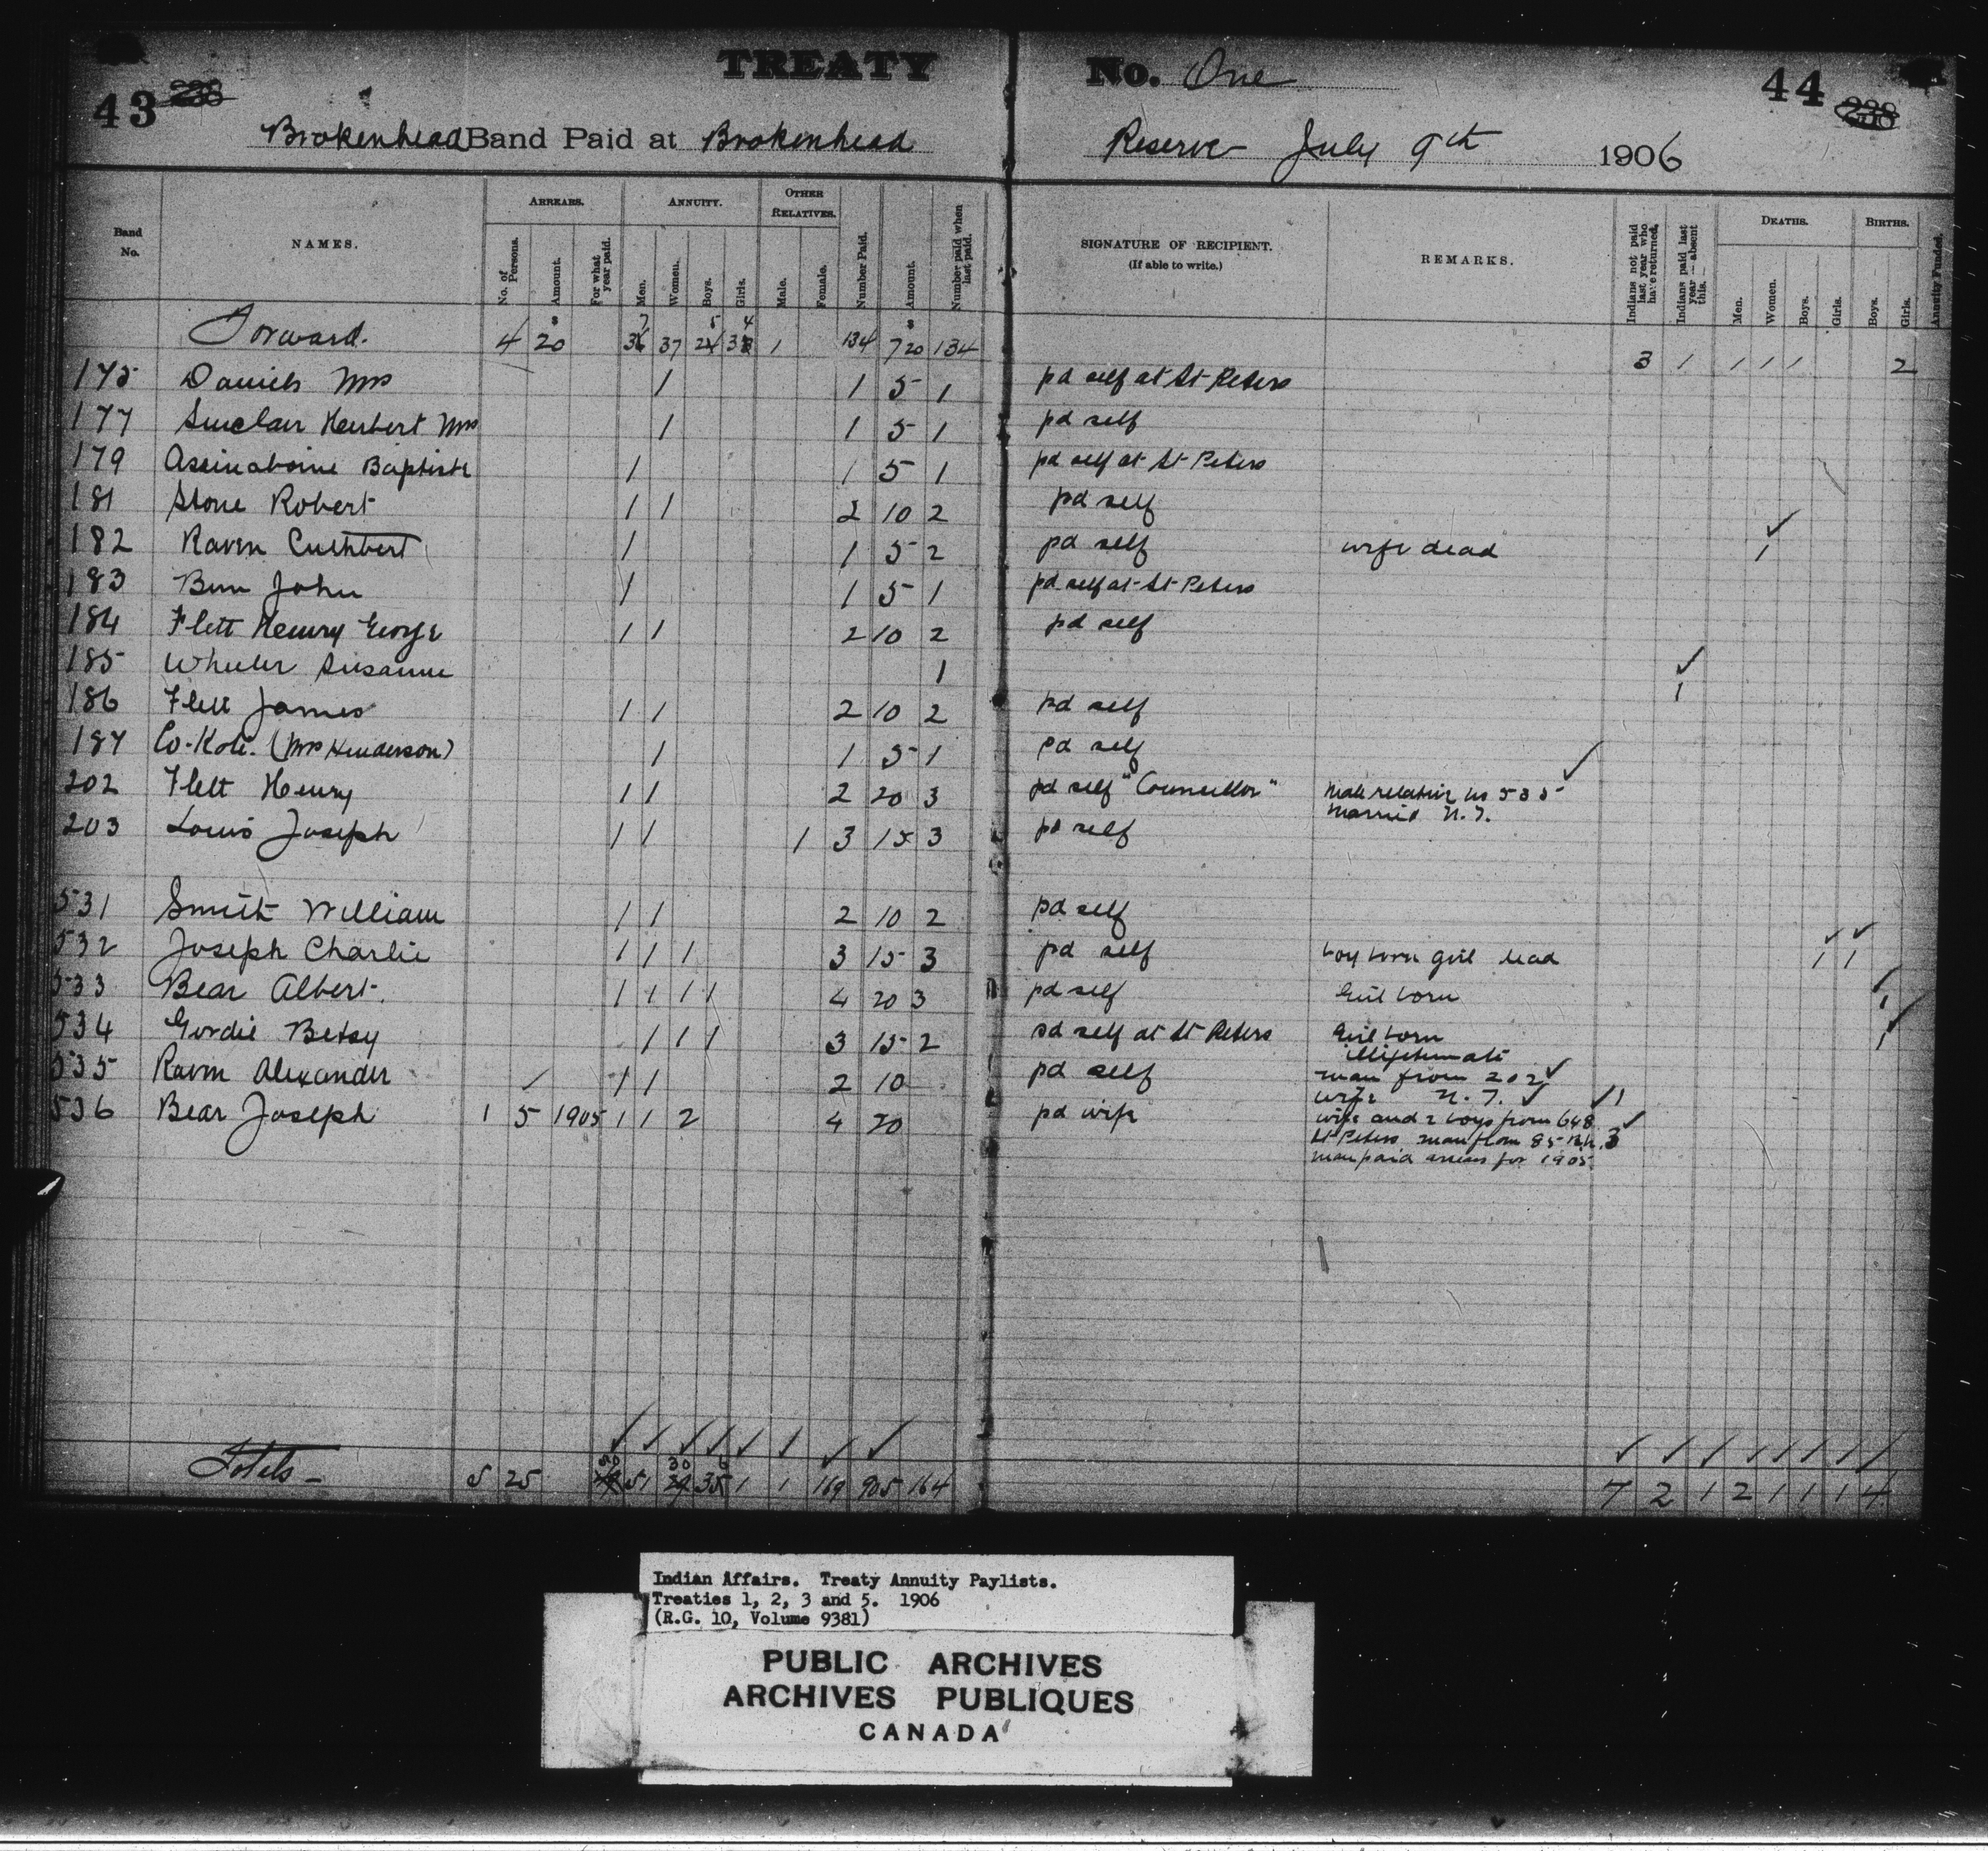 TREATY No. One
43 44
Brokenhead Band Paid at Brokenhead Reserve July 9th 1906
Band No. NAMES. ARREARS. ANNUITY. OTHER RELATIVES. Number Paid. Amount. Number paid when last paid. SIGNATURE OF RECIPIENT. (If able to write.) REMARKS. Indians not paid last year who have returned. Indians paid last year—absent this. DEATHS. BIRTHS. Annuity Funded.
No. of Persons. Amount. For what year paid. Men. Women. Boys. Girls. Male. Female. Men. Women. Boys. Girls. Boys. Girls.
Forward. 4 20 37 1 134 720 134 3 1 1 1 1 2
175 Daniels Mrs 1 1 5 1 pd self at St Peters
177 Sinclair Herbert Mrs 1 1 5 1 pd self
179 Assinaboine Baptiste 1 1 5 1 pd self at St Peters
181 Stone Robert 1 1 2 10 2 pd self
182 Raven Cuthbert 1 1 5 2 pd self wife dead 1
183 John 1 1 5 1 pd self at St Peters
184 Flett Henry George 1 1 2 10 2 pd self
185 Wheeler Susanne 1 1
186 Flett James 1 1 2 10 2 pd self
187 (Mrs Henderson) 1 1 5 1 pd self
202 Flett Henry 1 1 2 20 3 pd self "Councillor" Male relative is 535
married N.T.
203 Louis Joseph 1 1 1 3 15 3 pd self
531 Smith William 1 1 2 10 2 pd self
532 Joseph Charlie 1 1 1 3 15 3 pd self boy born girl dead 1 1
533 Bear Albert. 1 1 1 1 4 20 3 pd self Girl born 1
534 Gordie Betsy 1 1 1 3 15 2 pd self at St Peters Girl born 1
illigitimate
535 Raven Alexander 1 1 2 10 pd self man from 202
wife N.T. 1
536 Bear Joseph 1 5 1905 1 1 2 4 20 pd wife wife and 2 boys from 648
St Peters man from 85 3
man paid arrears for 1905
Totals 5 25 50 51 30 1 1 169 905 164 7 2 1 2 1 1 1 4
Indian Affairs. Treaty Annuity Paylists.
Treaties 1, 2, 3 and 5. 1906
(R.G. 10, Volume 9381)
PUBLIC ARCHIVES
ARCHIVES PUBLIQUES
CANADA